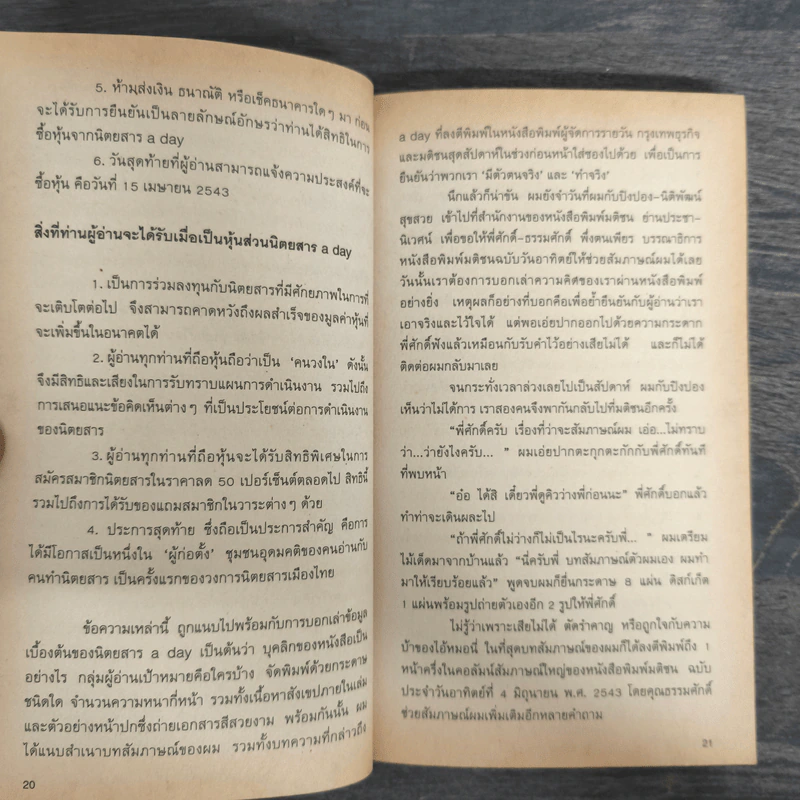 5. ห้ามส่งเงิน ธนาณัติ หรือเช็คธนาคารใดๆ มา ก่อน
จะได้รับการยืนยันเป็นลายลักษณ์อักษรว่าท่านได้สิทธิในการ
ซื้อหุ้นจากนิตยสาร a day
6. วันสุดท้ายที่ผู้อ่านสามารถแจ้งความประสงค์ที่จะ
ซื้อหุ้น คือวันที่ 15 เมษายน 2543
สิ่งที่ท่านผู้อ่านจะได้รับเมื่อเป็นหุ้นส่วนนิตยสาร a day
1. เป็นการร่วมลงทุนกับนิตยสารที่มีศักยภาพในการที่
จะเติบโตต่อไป จึงสามารถคาดหวังถึงผลสำเร็จของมูลค่าหุ้นที่
จะเพิ่มขึ้นในอนาคตได้
2. ผู้อ่านทุกท่านที่ถือหุ้นถือว่าเป็น ‘คนวงใน’ ดังนั้น
จึงมีสิทธิและเสียงในการรับทราบแผนการดำเนินงาน รวมไปถึง
การเสนอแนะข้อคิดเห็นต่างๆ ที่เป็นประโยชน์ต่อการดำเนินงาน
ของนิตยสาร
3. ผู้อ่านทุกท่านที่ถือหุ้นจะได้รับสิทธิพิเศษในการ
สมัครสมาชิกนิตยสารในราคาลด 50 เปอร์เซ็นต์ตลอดไป สิทธินี้
รวมไปถึงการได้รับของแถมสมาชิกในวาระต่างๆ ด้วย
4. ประการสุดท้าย ซึ่งถือเป็นประการสำคัญ คือการ
ได้มีโอกาสเป็นหนึ่งใน ‘ผู้ก่อตั้ง’ ชุมชนอุดมคติของคนอ่านกับ
คนทำนิตยสาร เป็นครั้งแรกของวงการนิตยสารเมืองไทย
ข้อความเหล่านี้ ถูกแนบไปพร้อมกับการบอกเล่าข้อมูล
เบื้องต้นของนิตยสาร a day เป็นต้นว่า บุคลิกของหนังสือเป็น
อย่างไร กลุ่มผู้อ่านเป้าหมายคือใครบ้าง จัดพิมพ์ด้วยกระดาษ
ชนิดใด จำนวนความหนากี่หน้า รวมทั้งเนื้อหาสังเขปภายในเล่ม
และตัวอย่างหน้าปกซึ่งถ่ายเอกสารสีสวยงาม พร้อมกันนั้น ผม
ได้แนบสำเนาบทสัมภาษณ์ของผม รวมทั้งบทความที่กล่าวถึง
20
a day ที่ลงตีพิมพ์ในหนังสือพิมพ์ผู้จัดการรายวัน กรุงเทพธุรกิจ
และมติชนสุดสัปดาห์ในช่วงก่อนหน้าใส่ซองไปด้วย เพื่อเป็นการ
ยืนยันว่าพวกเรา ‘มีตัวตนจริง’ และ ‘ทำจริง’
นึกแล้วก็น่าขัน ผมยังจำวันที่ผมกับปิงปอง-นิติพัฒน์
สุขสวย เข้าไปที่สำนักงานของหนังสือพิมพ์มติชน ย่านประชา-
นิเวศน์ เพื่อขอให้พี่ศักดิ์-ธรรมศักดิ์ พึ่งตนเพียร บรรณาธิการ
หนังสือพิมพ์มติชนฉบับวันอาทิตย์ให้ช่วยสัมภาษณ์ผมได้เลย
วันนั้นเราต้องการบอกเล่าความคิดของเราผ่านหนังสือพิมพ์
อย่างยิ่ง เหตุผลก็อย่างที่บอกคือเพื่อย้ำยืนยันกับผู้อ่านว่าเรา
เอาจริงและไว้ใจได้ แต่พอเอ่ยปากออกไปด้วยความกระดาก
พี่ศักดิ์ฟังแล้วเหมือนกับรับคำไว้อย่างเสียไม่ได้ และก็ไม่ได้
ติดต่อผมกลับมาเลย
จนกระทั่งเวลาล่วงเลยไปเป็นสัปดาห์ ผมกับปิงปอง
เห็นว่าไม่ได้การ เราสองคนจึงพากันกลับไปที่มติชนอีกครั้ง
“พี่ศักดิ์ครับ เรื่องที่ว่าจะสัมภาษณ์ผม เอ่อ...ไม่ทราบ
ว่า...ว่ายังไงครับ... ” ผมเอ่ยปากตะกุกตะกักกับพี่ศักดิ์ทันที
ที่พบหน้า
“อ๋อ ได้สิ เดี๋ยวพี่ดูคิวว่างพี่ก่อนนะ” พี่ศักดิ์บอกแล้ว
ทำท่าจะเดินผละไป
“ถ้าพี่ศักดิ์ไม่ว่างก็ไม่เป็นไรนะครับพี่... ” ผมเตรียม
ไม้เด็ดมาจากบ้านแล้ว “นี่ครับพี่ บทสัมภาษณ์ตัวผมเอง ผมทำ
มาให้เรียบร้อยแล้ว” พูดจบผมก็ยื่นกระดาษ 8 แผ่น ดิสก์เก็ต
1 แผ่นพร้อมรูปถ่ายตัวเองอีก 2 รูปให้พี่ศักดิ์
ไม่รู้ว่าเพราะเสียไม่ได้ ตัดรำคาญ หรือถูกใจกับความ
บ้าของไอ้หมอนี่ ในที่สุดบทสัมภาษณ์ของผมก็ได้ลงตีพิมพ์ถึง 1
หน้าครึ่งในคอลัมน์สัมภาษณ์ใหญ่ของหนังสือพิมพ์มติชน ฉบับ
ประจำวันอาทิตย์ที่ 4 มิถุนายน พ.ศ. 2543 โดยคุณธรรมศักดิ์
ช่วยสัมภาษณ์ผมเพิ่มเติมอีกหลายคำถาม
21